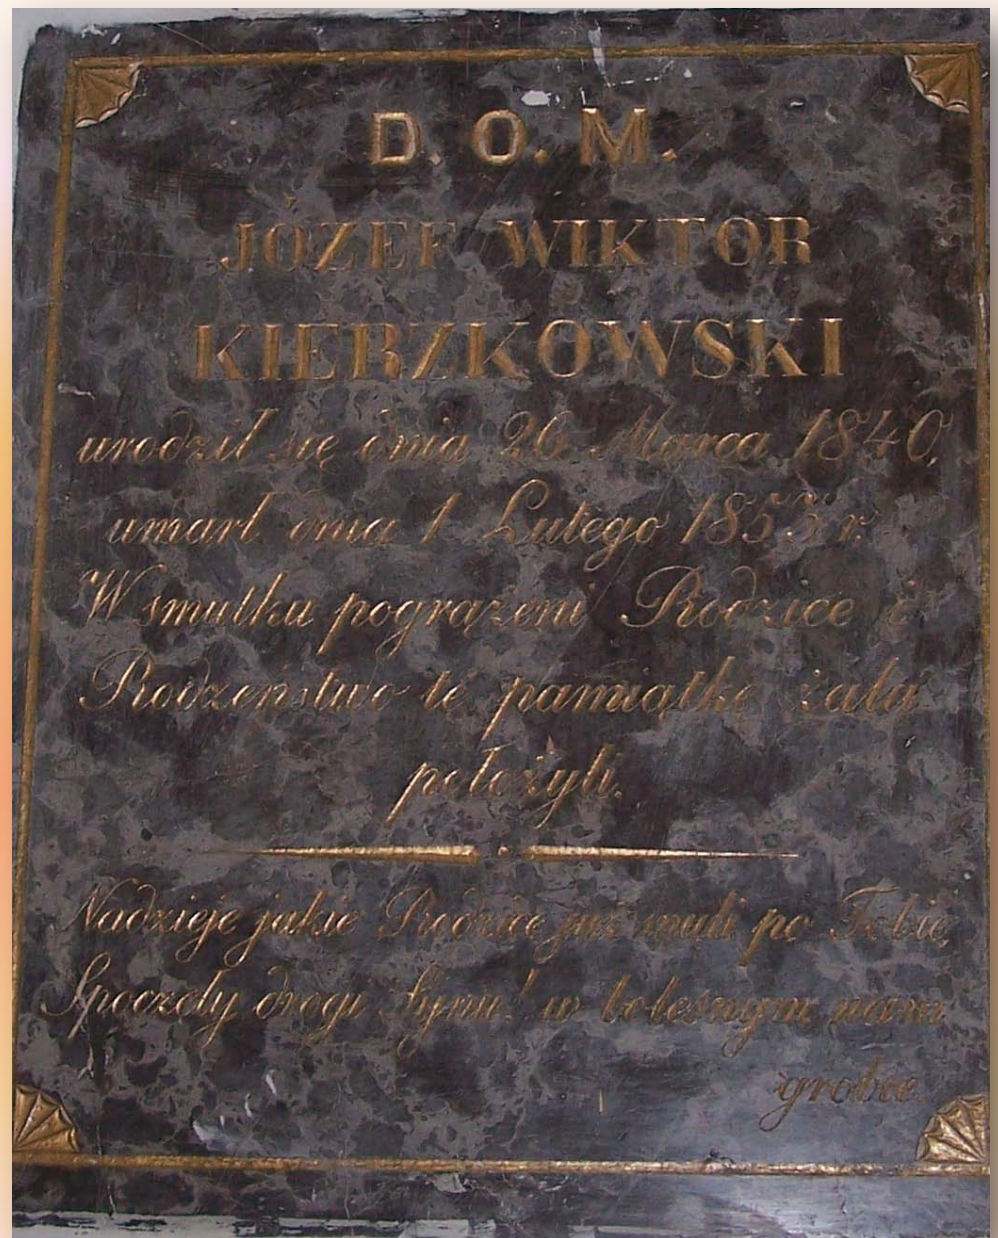 D. O. M.
JÓZEF WIKTOR
KIERZKOWSKI
urodził się dnia 26 Marca 1840,
umarł dnia 1 Lutego 1853 r.
W smutku pogrążeni Rodzice i
Rodzeństwo tę pamiątkę żalu
położyli.
Nadzieje jakie Rodzice już mieli po Tobie,
Spoczęły drogi Synu! w bolesnym nam
grobie.